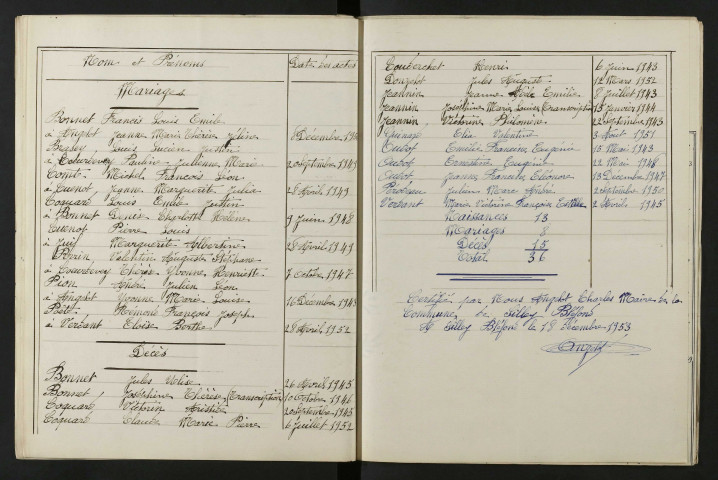 Nom et Prénoms Date des actes
Mariages
Bonnet Francis Louis Emile
à Anglot Jeanne Marie Thérèse 8 Décembre
Louis Lucien Justin
à Courdevey Pauline Julienne Marie 20 septembre 1949
Comte Michel François Léon
à Cuenot Jeanne Marguerite Julie 28 Avril 1949
Coquard Louis Emile Justin
à Bonnet Denise Charlotte Hélène 9 Juin 1948
Cuenot Pierre Louis
à Marguerite Albertine 28 Avril 1949
Perrin Valentin Auguste Stéphane
à Courdevey Thérèse Yvonne Henriette 7 Octobre 1947
Pion André Julien Léon
à Anglot Yvonne Marie Louise 16 Décembre 1948
Raymond François Joseph
à Versant Eloïse Berthe 28 Avril 1952
Décès
Bonnet Jules 26 Avril 1945
Bonnet, Joséphine Thérèse (Transcription) 10 Octobre 1946
Coquard Victorin Aristide 20 septembre 1943
Coquard Claude Marie Pierre 6 Juillet 1952
Henri 6 Juin 1943
Donzelot Jules Auguste 12 Mars 1952
Jeannin Jeanne Emilie 8 Juillet 1943
Jeannin Joséphine Marie Louise (Transcription) 13 Janvier 1944
Jeannin, Victorine Philomène 22 septembre 1943
Elise Valentine 3 Août 1951
Emilie Francine Eugénie 15 Mai 1943
Ernestine Eugénie 22 Mai 1948
Jeanne Francine Eléonore 13 Décembre 1947
Julien Marie André 2 septembre 1950
Versant Marie Victorine Françoise 2 Avril 1945
Naissances 13
Mariages 8
Décès 15
Total 36
Certifié par Nous Anglot Charles Maire de la
Commune de Silley Bléfond
A Silley Bléfond le 18 Décembre 1953
Anglot